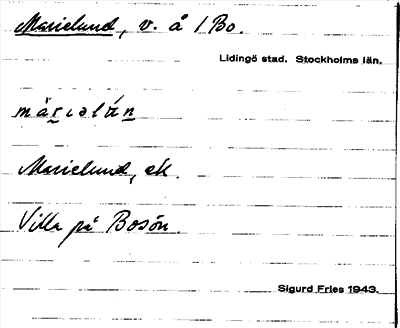 Marielund, v. å 1 Bo.
Lidingö stad. Stockholms län.
Marielund, ek.
Villa på Bosön.
Sigurd Fries 1943.